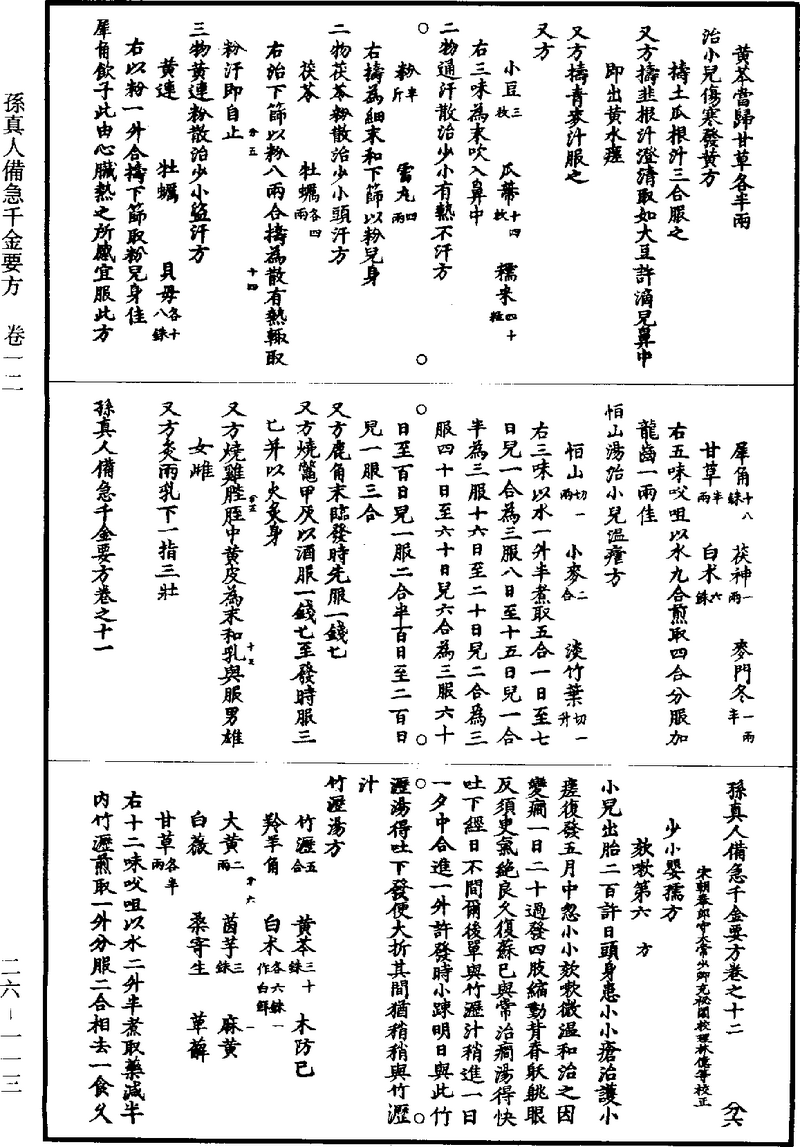 孫真人備急千金要方　卷一二
黃芩當歸甘草各半兩
治小兒傷寒發黃方
擣土瓜根汁三合服之
又方擣韭根汁澄清取如大豆許滴兒鼻中
即出黃水瘥
又方擣青麥汁服之
又方
小豆三枚　瓜蔕十四枚　糯米四十粒
右三味為末吹入鼻中
二物通汗散治少小有熱不汗方
粉半斤　雷丸四兩
右擣為細末和下篩以粉兒身
二物茯苓粉散治少小頭汗方
茯苓　牡蠣各四兩
右治下篩以粉八兩合擣為散有熱輙取
粉汗即自止
三物黃連粉散治少小盜汗方
黃連　牡蠣　貝母各十八銖
右以粉一升合擣下篩取粉兒身佳
犀角飲子此由心臟熱之所感宜服此方
犀角十八銖　茯神一兩　麥門冬一兩半
甘草半兩　白朮六銖
右五味㕮咀以水九合煎取四合分服加
龍齒一兩佳
恒山湯治小兒溫瘧方
恒山切一兩　小麥二合　淡竹葉切一升
右三味以水一升半煮取五合一日至七
日兒一合為三服八日至十五日兒一合
半為三服十六日至二十日兒二合為三
服四十日至六十日兒六合為三服六十
日至百日兒一服二合半百日至二百日
兒一服三合
又方鹿角末臨發時先服一錢匕
又方燒鼈甲灰以酒服一錢匕至發時服三
匕并以火炙身
又方燒雞䏶胵中黃皮為末和乳與服男雄
女雌
又方灸兩乳下一指三壯
孫真人備急千金要方卷之十一
孫真人備急千金要方卷之十二
宋朝奉郎守太常少卿充祕閣校理林億等校正
少小嬰孺方
欬嗽第六　方
小兒出胎二百許日頭身患小小瘡治護小
瘥復發五月中忽小小欬嗽微溫和治之因
變癇一日二十過發四肢縮動背脊䏿䠷眼
反須臾氣絕良久復蘇已與常治癇湯得快
吐下經日不間爾後單與竹瀝汁稍進一日
一夕中合進一升許發時小踈明日與此竹
瀝湯得吐下發便大折其間猶稍稍與竹瀝
汁
竹瀝湯方
竹瀝五合　黃芩三十銖　木防己
羚羊角　白朮各六銖一作白鮮
大黃二兩　茵芋三銖　麻黃
白薇　桑寄生　萆薢
甘草各半兩
右十二味㕮咀以水二升半煮取藥減半
內竹瀝煎取一升分服二合相去一食久
二六－一一三